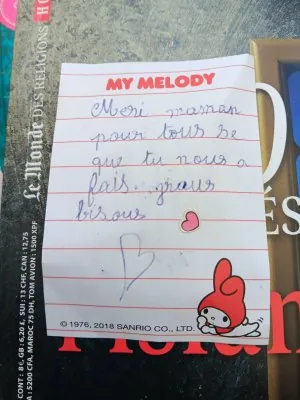 MY MELODY
Meri maman
pour tous se
que tu nous a
fais. graus
bisous
© 1976, 2018 SANRIO CO., LTD.
Le Monde DES RELIGIONS HO
CONT : 8 €, GB : 6,20 £, SUI : 13 CHF, CAN : 12,75
A : 5200 CFA, MAROC 75 DH, TOM AVION : 1500 XPF
ÉS